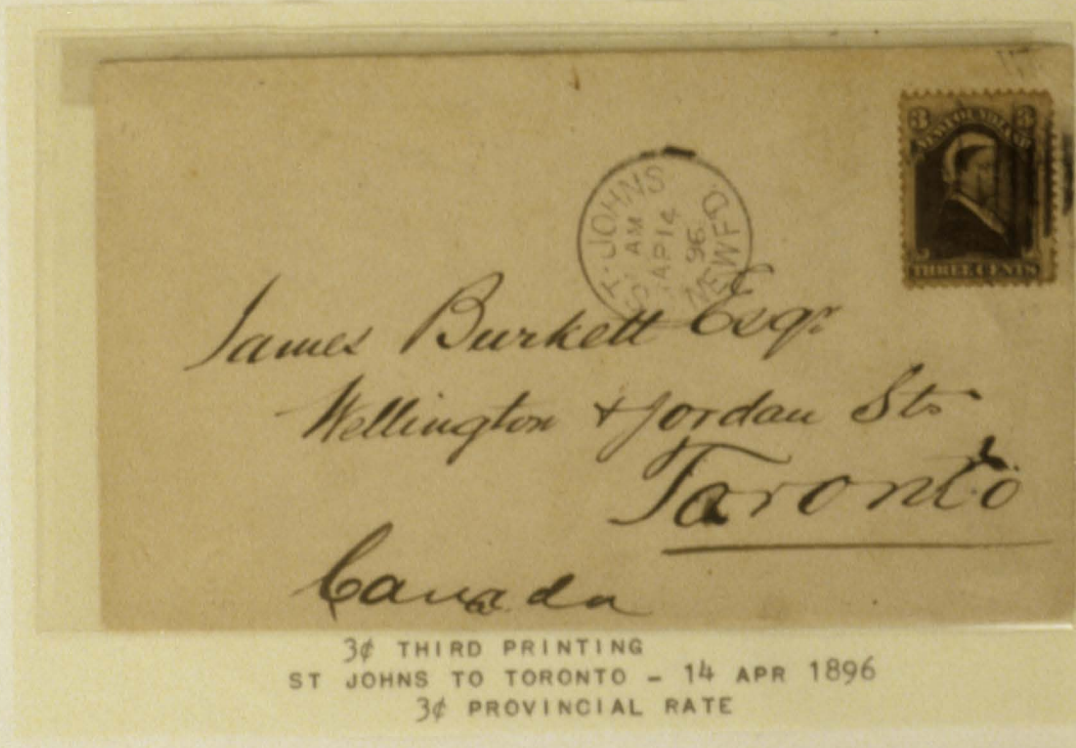 3 3
NEWFOUNDLAND
THREE CENTS
ST. JOHNS
AM
AP 14
96
NEWFD.
James Burkett Esqr
Wellington & Jordan Sts
Toronto
Canada
3¢ THIRD PRINTING
ST JOHNS TO TORONTO – 14 APR 1896
3¢ PROVINCIAL RATE